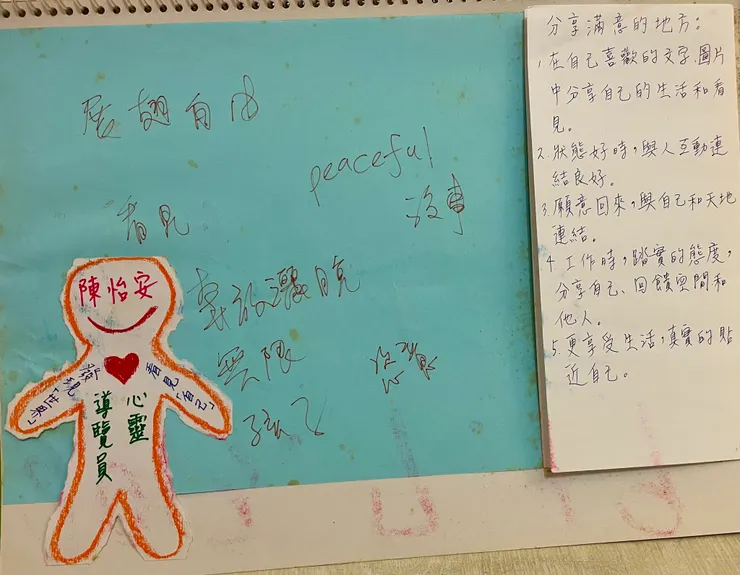 展翅自由
peaceful
沒事
看見
無限
陳怡安
發現
看見「自己」
心靈
導覽員
分享滿意的地方：
1.在自己喜歡的文字、圖片
中分享自己的生活和看
見。
2.狀態好時，與人互動連
結良好。
3.願意回來，與自己和天地
連結。
4.工作時，踏實的態度，
分享自己、回饋空間和
他人。
5.更享受生活，真實的貼
近自己。